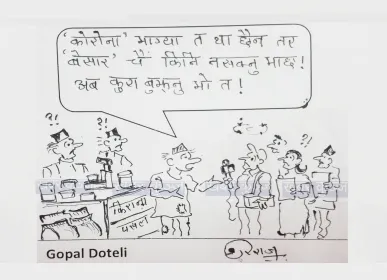 'कोरोना' भाग्या त था छैन तर
'बेसार' चैं किनि नसक्नु भाछ!
अब कुरा बुझ्नु भो त!
?!
?!
?!
किराना
पसल
Gopal Doteli